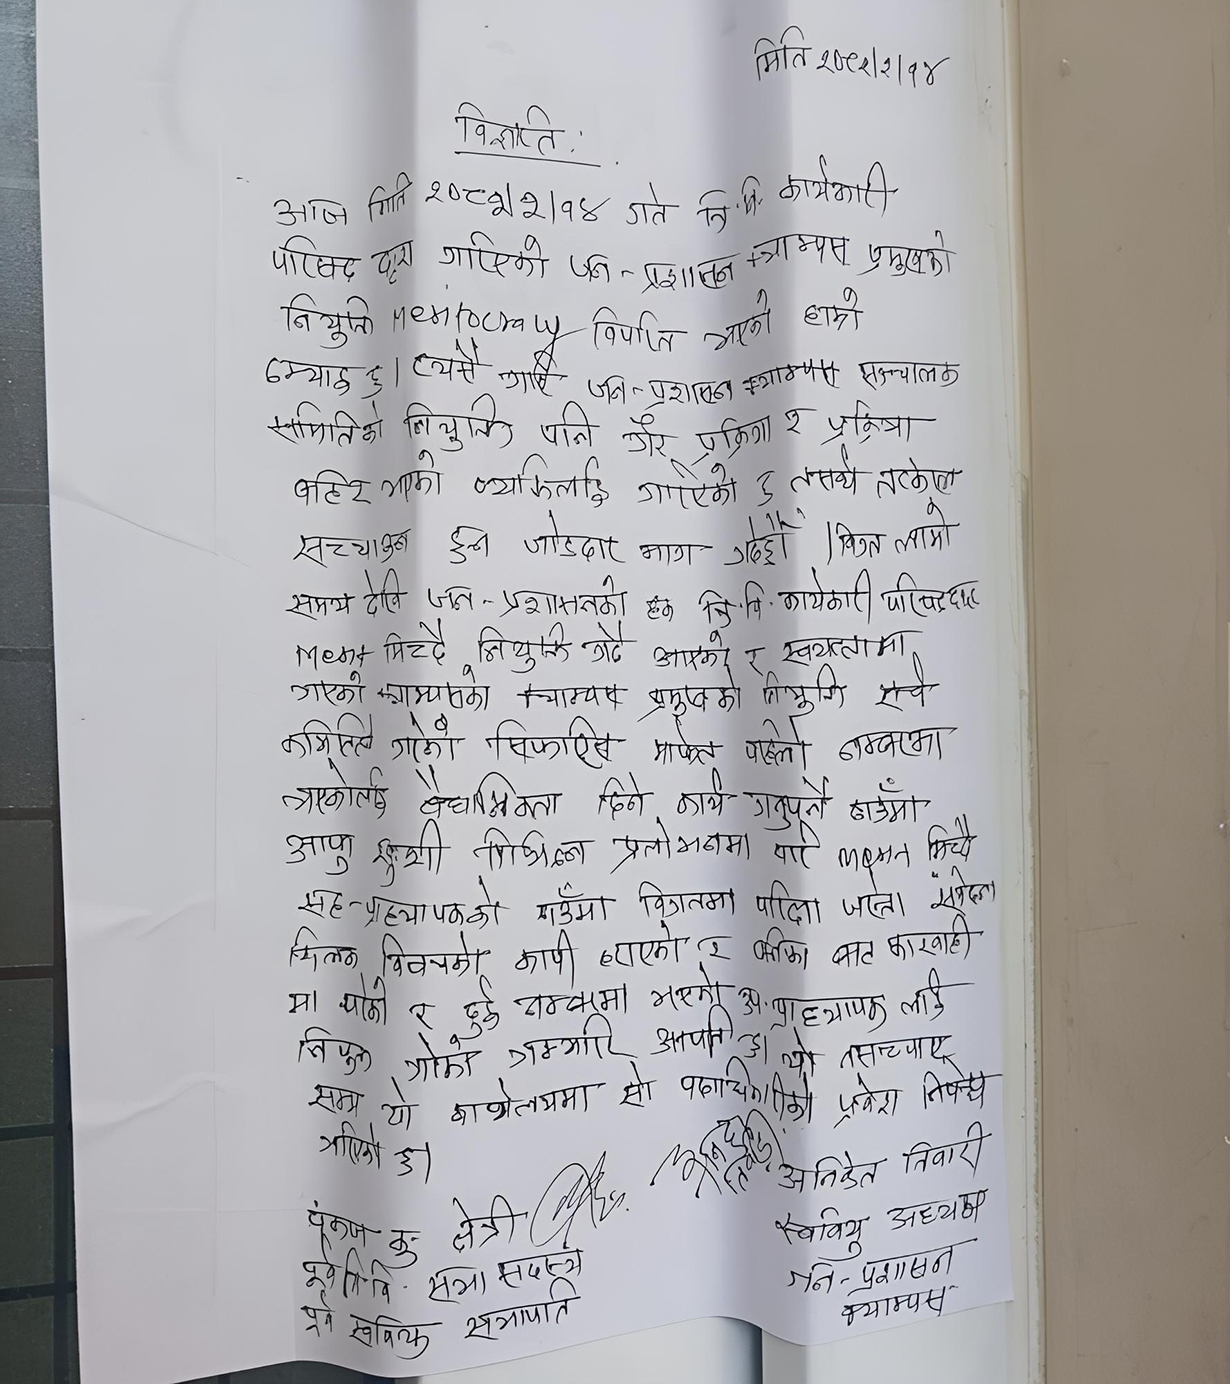 मिति २०८२/२/१४
विज्ञप्ति :
आज मिति २०८२/२/१४ गते त्रि.वि. कार्यकारी
परिषद द्वारा गरिएको जन-प्रशासन क्याम्पस प्रमुखको
नियुक्ति Meritocracy विपरित भएको हाम्रो
ठम्याइ छ। त्यसै गरि जन-प्रशासन क्याम्पस सञ्चालक
समितिको नियुक्ति पनि गैर प्रक्रिया र प्रक्रिया
बाहिर भएको व्यक्तिलाई गरिएको छ तसर्थ तत्काल
सच्चाउन हुन जोडदार माग गर्दछौं । विगत लामो
समय देखि जन-प्रशासनको हक त्रि.वि. कार्यकारी परिषदद्वारा
Merit मिच्दै नियुक्ति गर्दै आएको र स्वायत्ततामा
गएको क्याम्पसको क्याम्पस प्रमुखको नियुक्ति सर्च
कमिटिले गरेको सिफारिस मार्फत पहिलो नम्बरमा
भएकोलाई वैधानिकता दिने कार्य गर्नुपर्ने ठाउँमा
आफु खुशी विभिन्न प्रलोभनमा पारि मिचै
सह-प्राध्यापकको ठाउँमा विगतमा परिक्षा जस्तो संवेदन
शिलक विषयको कापी हराएको र कारवाही
मा परेको र दुई नम्बरमा भएको उप-प्राध्यापक लाई
नियुक्त गरेको गम्भीर आपत्ति छ। यो नसच्चाए
सम्म यो कार्यालयमा सो पदाधिकारीको प्रवेश निषेध
गरिएको छ।
पंकज कु क्षेत्री
पूर्व त्रि वि. सभा सदस्य
पूर्व स्ववियु सभापति
अनिकेत तिवारी
स्ववियु अध्यक्ष
जन-प्रशासन
क्याम्पस